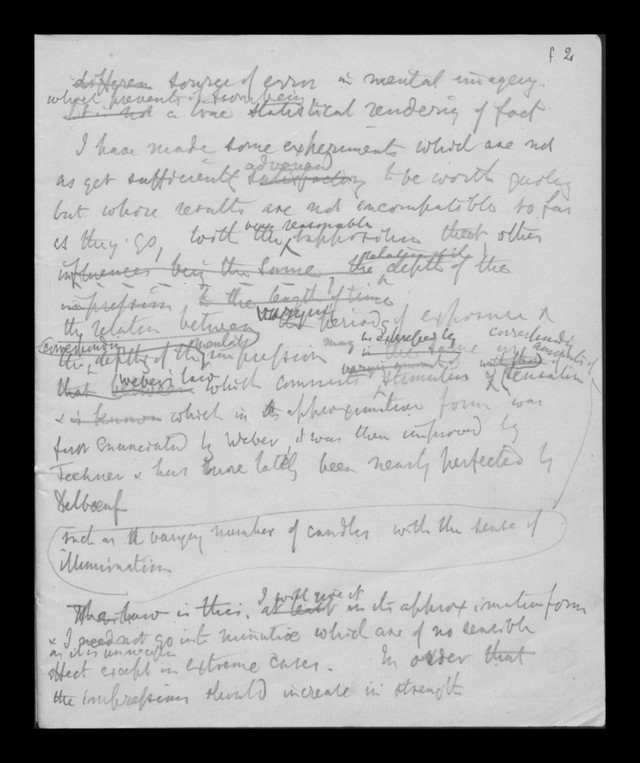 f 2
differen source of error in mental imagery.
which prevents it from being
it is not a true statistical rendering of fact
I have made some experiments which are not
advanced
as yet sufficiently satisfactory to be worth quoting
but whose results are not incompatible so far
very reasonable
as they go, with the supposition that other
relative
influences being the same the depth of the
impression & the length of time
varying
the relation between the periods of exposure &
corresponding mental may be expressed by corresponding
the depths of the impression is the same
Weber's law varying with that of
that between which connects stimulus & sensation
& is known which in its approximative form was
first enunciated by Weber, it was then improved by
Fechner & has more lately been nearly perfected by
Delboeuf
such as a varying number of candles with the sense of
illumination
I will give it
The law is this. at least in its approximative form
& I need not go into minutiae which are of no sensible
as it is unnecessary
effect except in extreme cases. In order that
the impressions should increase in strength